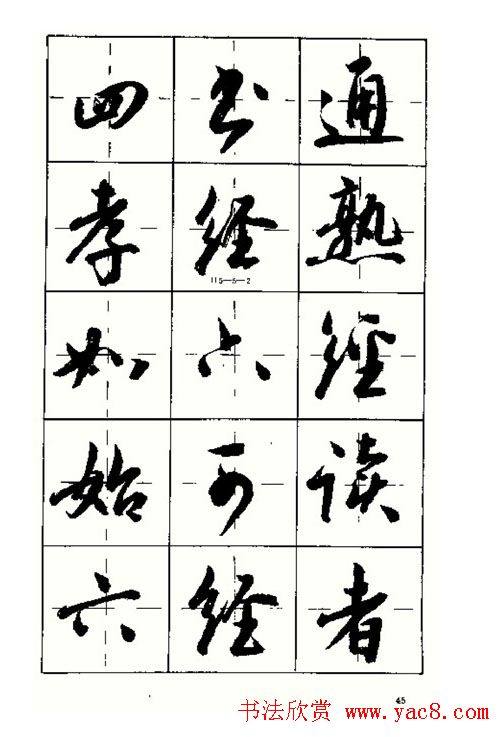 四书通
孝经熟
115—5—2
如六经
始可读
六经者
45
书法欣赏 www.yac8.com